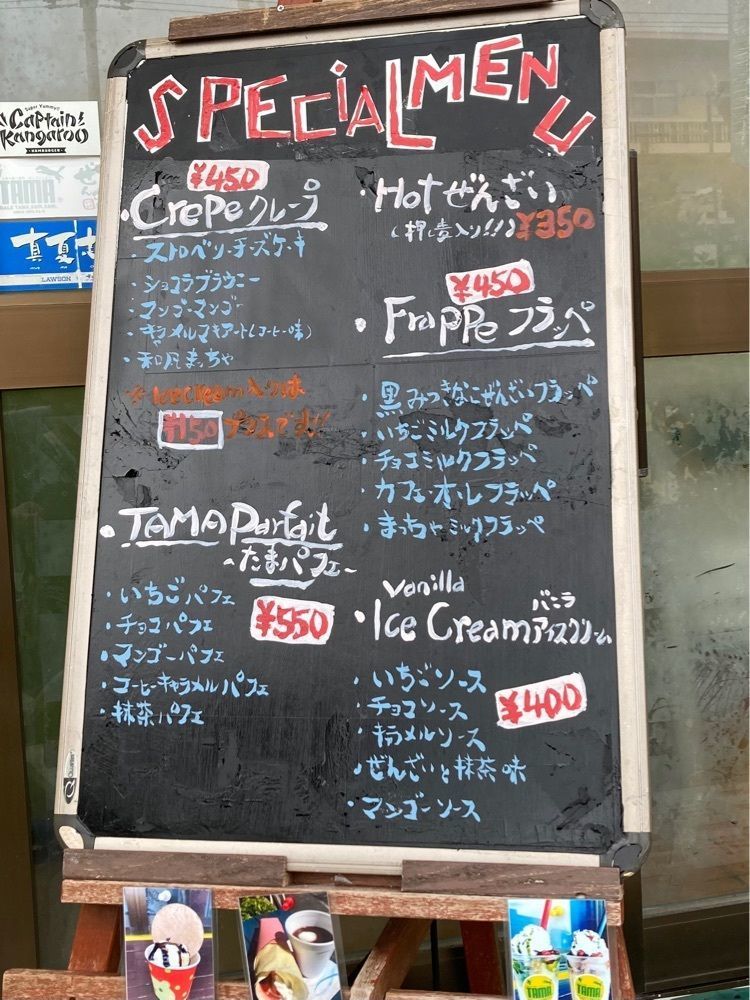 SPECIAL MENU
Super Yummy!!
Captain
Kangaroo
HAMBURGER
TAMA
真夏
LAWSON
¥450
・Crepe クレープ
・ストロベリーチーズケーキ
・ショコラブラウニー
・マンゴーマンゴー
・キャラメルマキアート(コーヒー味)
・和風まっちゃ
Icecream入りは
¥150プラスです!!
・TAMA Parfait
~たまパフェ~
¥550
・いちごパフェ
・チョコパフェ
・マンゴーパフェ
・コーヒーキャラメルパフェ
・抹茶パフェ
・Hotぜんざい
(押し麦入り!!!) ¥350
¥450
・Frappe フラッペ
・黒みつきなこぜんざいフラッペ
・いちごミルクフラッペ
・チョコミルクフラッペ
・カフェ・オ・レフラッペ
・まっちゃミルクフラッペ
Vanilla バニラ
・Ice Cream アイスクリーム
¥400
・いちごソース
・チョコソース
・キャラメルソース
・ぜんざいと抹茶味
・マンゴーソース
TAMA
TAMA